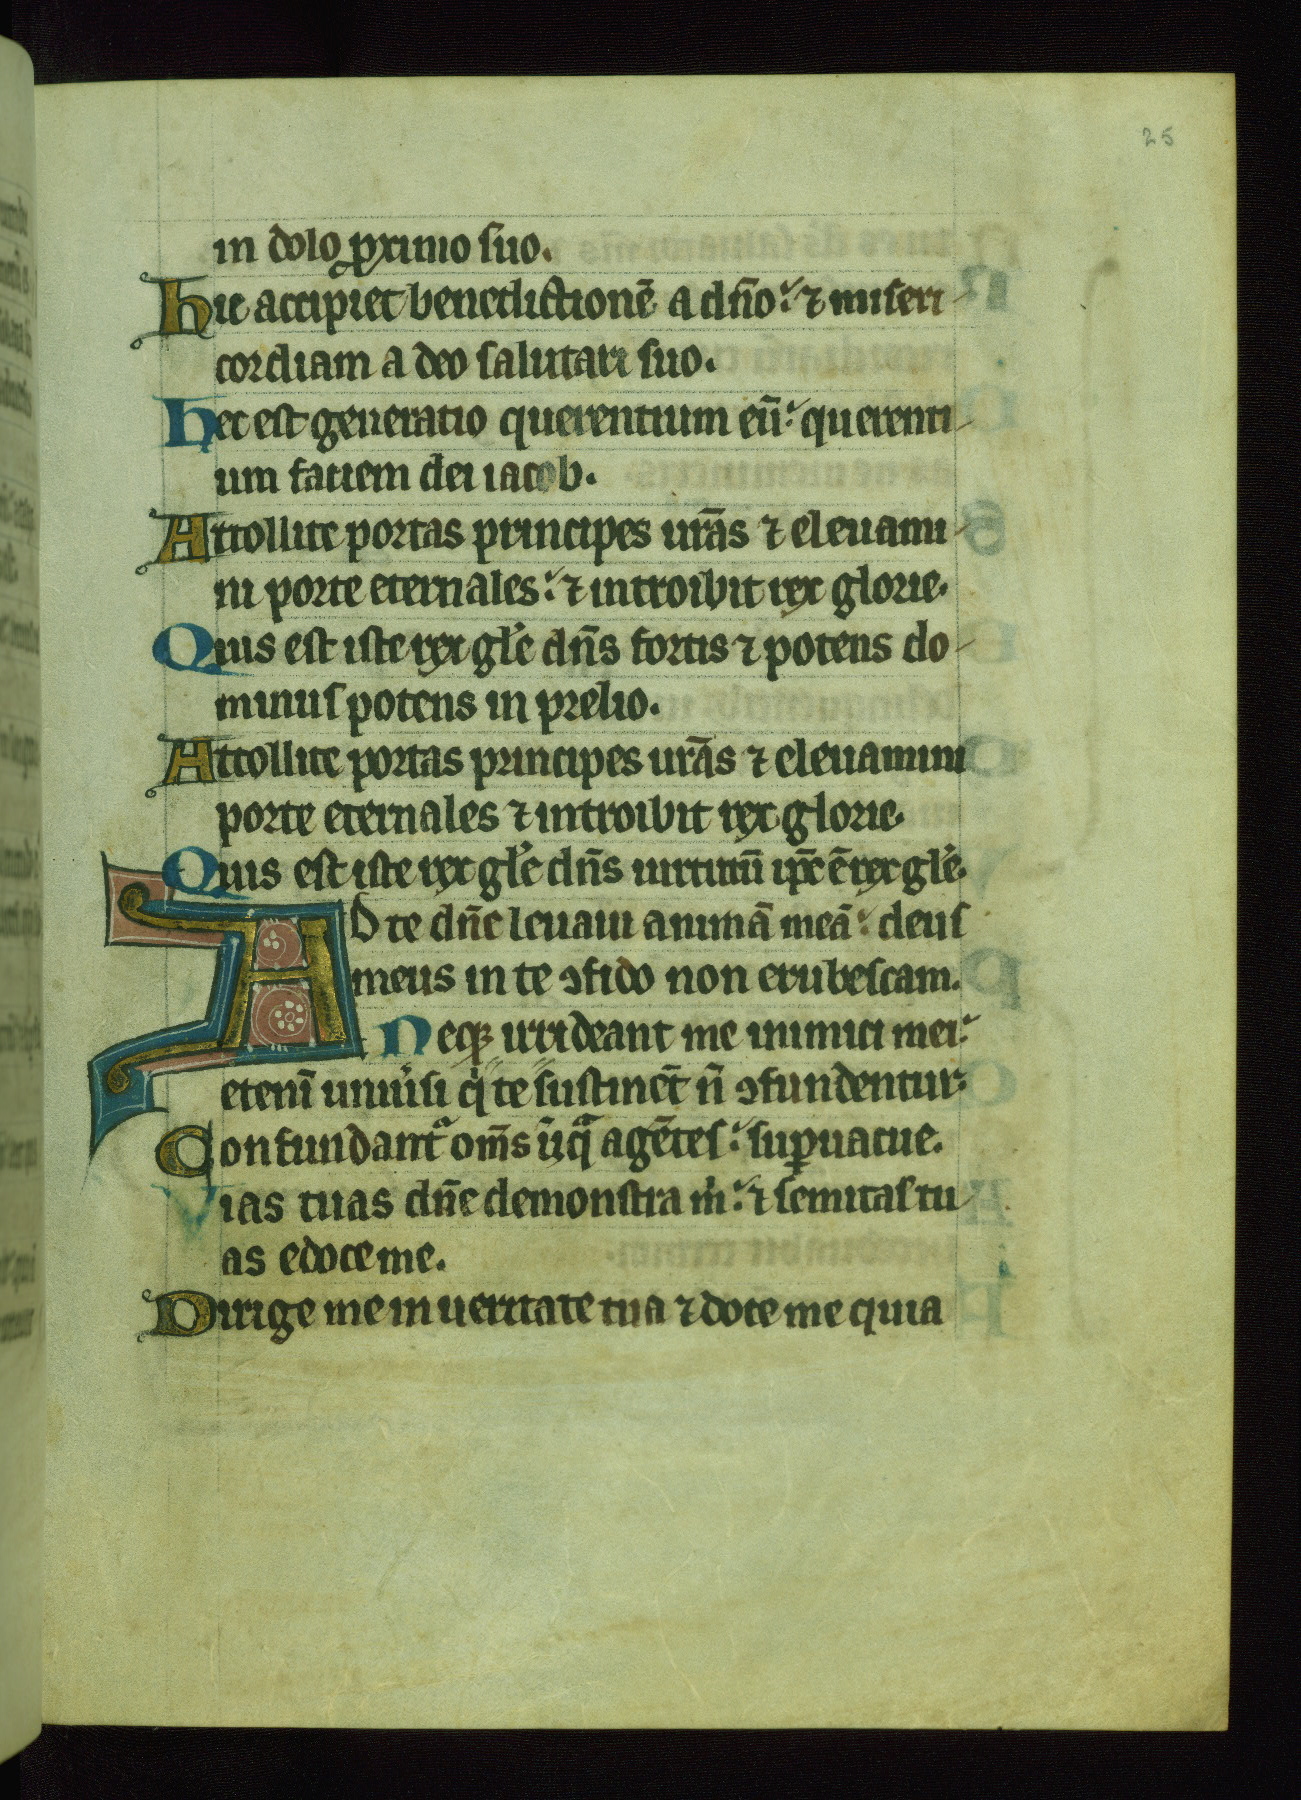 25
in dolo ꝓximo suo.
Hic accipiet benedictionē a dn̄o: ⁊ miseri-
cordiam a deo salutari suo.
Hec est generatio querentium eū: querenti-
um faciem dei iacob.
Attollite portas principes ur̄as ⁊ eleuami-
ni porte eternales: ⁊ introibit rex glorie.
Quis est iste rex gl'e dn̄s fortis ⁊ potens do-
minus potens in prelio.
Attollite portas principes ur̄as ⁊ eleuamini
porte eternales ⁊ introibit rex glorie.
Quis est iste rex gl'e dn̄s uirtutū ip̄e ē rex gl'e.
AD te dn̄e leuaui animā meā: deus
meus in te ɔfido non erubescam.
Neqꝫ irrideant me inimici mei:
etenī uniu'si q' te sustinēt n̄ ɔfundentur:
Confundant' om̄s iniq̄ agētes: suꝑuacue.
Vias tuas dn̄e demonstra m': ⁊ semitas tu-
as edoce me.
Dirige me in ueritate tua ⁊ doce me quia